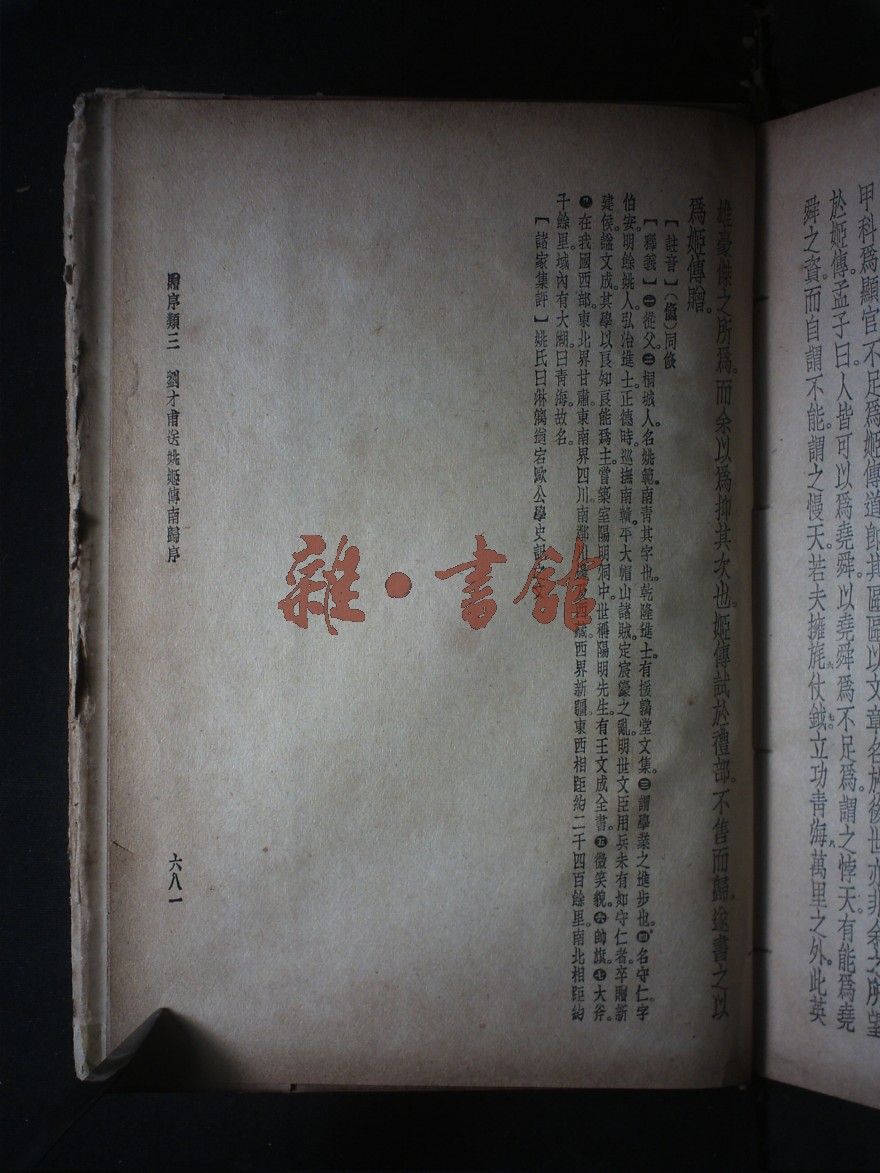 甲科爲顯官不足爲姬傳道郎其區區以文章名於後世亦非余之所望
於姬傳。孟子曰。人皆可以爲堯舜。以堯舜爲不足爲。謂之悖天。有能爲堯
舜之資。而自謂不能。謂之慢天。若夫擁旄仗鉞。立功青海萬里之外。此英
雄豪傑之所爲。而余以爲抑其次也。姬傳試於禮部。不售而歸。遂書之以
爲姬傳贈。
【註音】（脩）同修
【釋義】㊀從父。㊁桐城人名姚範。南青其字也。乾隆進士。有援鶉堂文集。㊂謂學業之進步也。㊃名守仁字
伯安。明餘姚人。弘治進士。正德時。巡撫南贛。平大帽山諸賊。定宸濠之亂。明世文臣用兵未有如守仁者。卒贈新
建侯。諡文成。其學以良知良能爲主。嘗築室陽明洞中。世稱陽明先生。有王文成全書。㊄微笑貌。㊅帥旗。㊆大斧。
在我國西部。東北界甘肅。東南界四川。南鄰 西藏。西界新疆。東西相距約二千四百餘里。南北相距約
千餘里。域內有大湖曰青海。故名。
【諸家集評】姚氏曰淋漓遒宕歐公學史記
贈序類三 劉才甫送姚姬傳南歸序
六八一
雜·書館